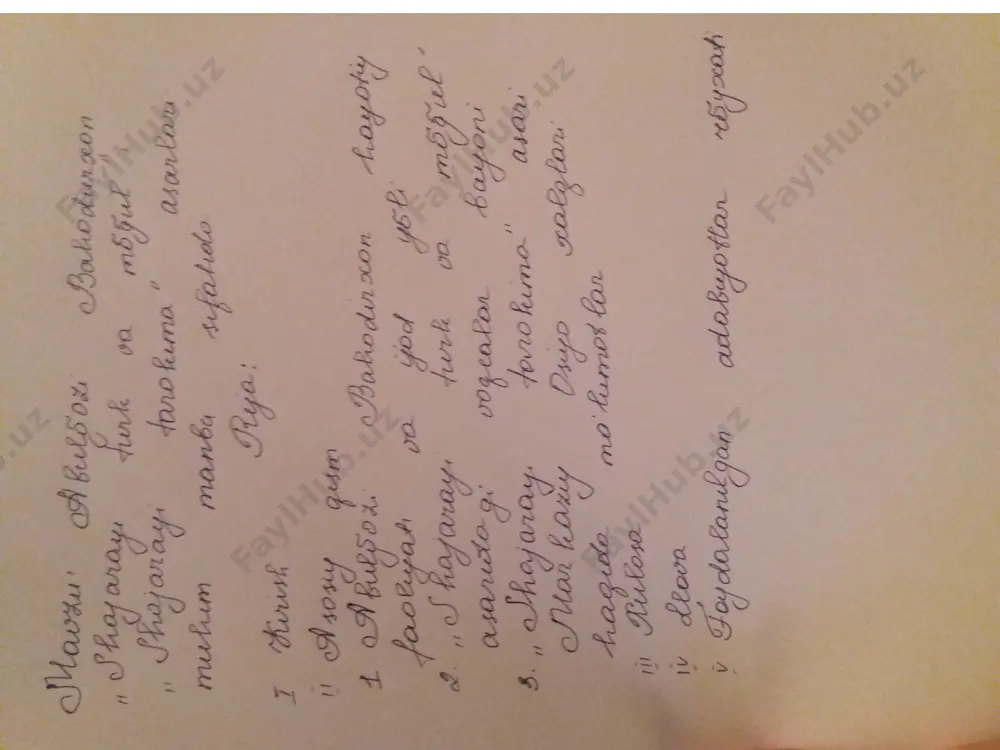 Mavzu: Abulg̅ozi Bahodirxon
"Shajarayi turk va mōg̅ul",
"Shajarayi tarokima" asarlari
muhum manba sifatida
Reja:
I Kirish
ii Asosiy qism
1 Abulg̅ozi Bahodirxon hayotiy
faoliyati va ijod yōli
2. "Shajarayi turk va mōg̅ul"
asaridagi voqealar bayoni
3. "Shajarayi tarokima" asari
Markaziy Osiyo xalqlari
haqida ma'lumotlar
iii Xulosa
iv Ilova
v Foydalanilgan adabiyotlar rōyxati
FaylHub.uz
FaylHub.uz
FaylHub.uz
FaylHub.uz
FaylHub.uz